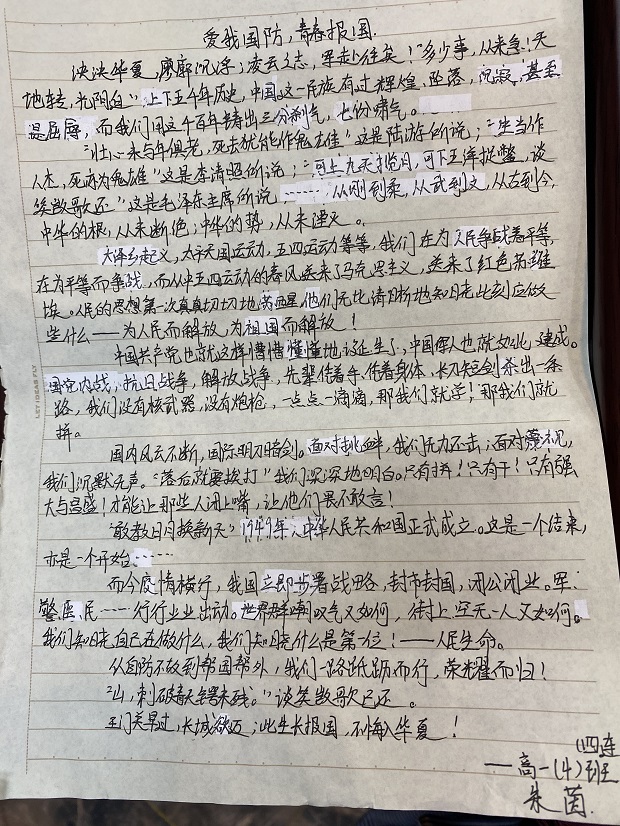 爱我国防,青春报国.
泱泱华夏,廖廓沉浮;凌云之志,罕走往矣!"多少事,从来急!天
地转,光阴白"上下五千年历史,中国这一民族有过辉煌、坠落,沉寂,甚至
是屈辱,而我们用这千百年铸出三分刚气,七份痨气。
"壮心未与年俱老,死去犹能作鬼雄"这是陆游所说;"生当作
人杰,死亦为鬼雄"这是李清照所说;"可上九天揽月,可下五洋捉鳖,谈
笑凯歌还"这是毛泽东主席所说……从刚到柔,从武到文,从古到今,
中华的根,从未断绝;中华的势,从未湮灭。
大泽乡起义,太平天国运动,五四运动等等,我们在为人民争战为平等,
在为平等而争战,而从中五四运动的春风送来了马克思主义,送来了红色苏维
埃。人民的思想第一次真真切切地苏醒,他们无比清晰地知晓此刻应做
些什么——为人民而解放,为祖国而解放!
中国共产党也就这样懵懵懂懂地诞生了,中国军人也就如此建成。
国党内战,抗日战争,解放战争,先辈凭着手,凭着身体、长刀短剑杀出一条
路,我们没有核武器,没有炮枪,一点点一滴滴,那我们就学!那我们就
拼。
国内风云不断,国际明刀暗剑。面对挑衅,我们无力还击;面对藐视,
我们沉默无声。"落后就要挨打"我们深深地明白。只有拼!只有干!只有强
大与昌盛!才能让那些人闭上嘴,让他们畏不敢言!
"敢教日月换新天"1949年,中华人民共和国正式成立。这是一个结束,
亦是一个开始……
而今疫情横行,我国立即步署战略,封市封国,闭公闭业。军、
警、医、民……行行业业出动。世界群嘲叹气又如何,街上空无一人又如何。
我们知晓自己在做什么,我们知晓什么是第一位!——人民生命。
从自防不放到帮国帮外,我们一路砥砺而行,荣耀而归!
"山,刺破青天锷未残。"谈笑凯歌已还。
玉门关早过,长城欲迈;此生长报国,不悔入华夏!
(四连
——高一(4)班
朱茵.
LET IDEAS FLY